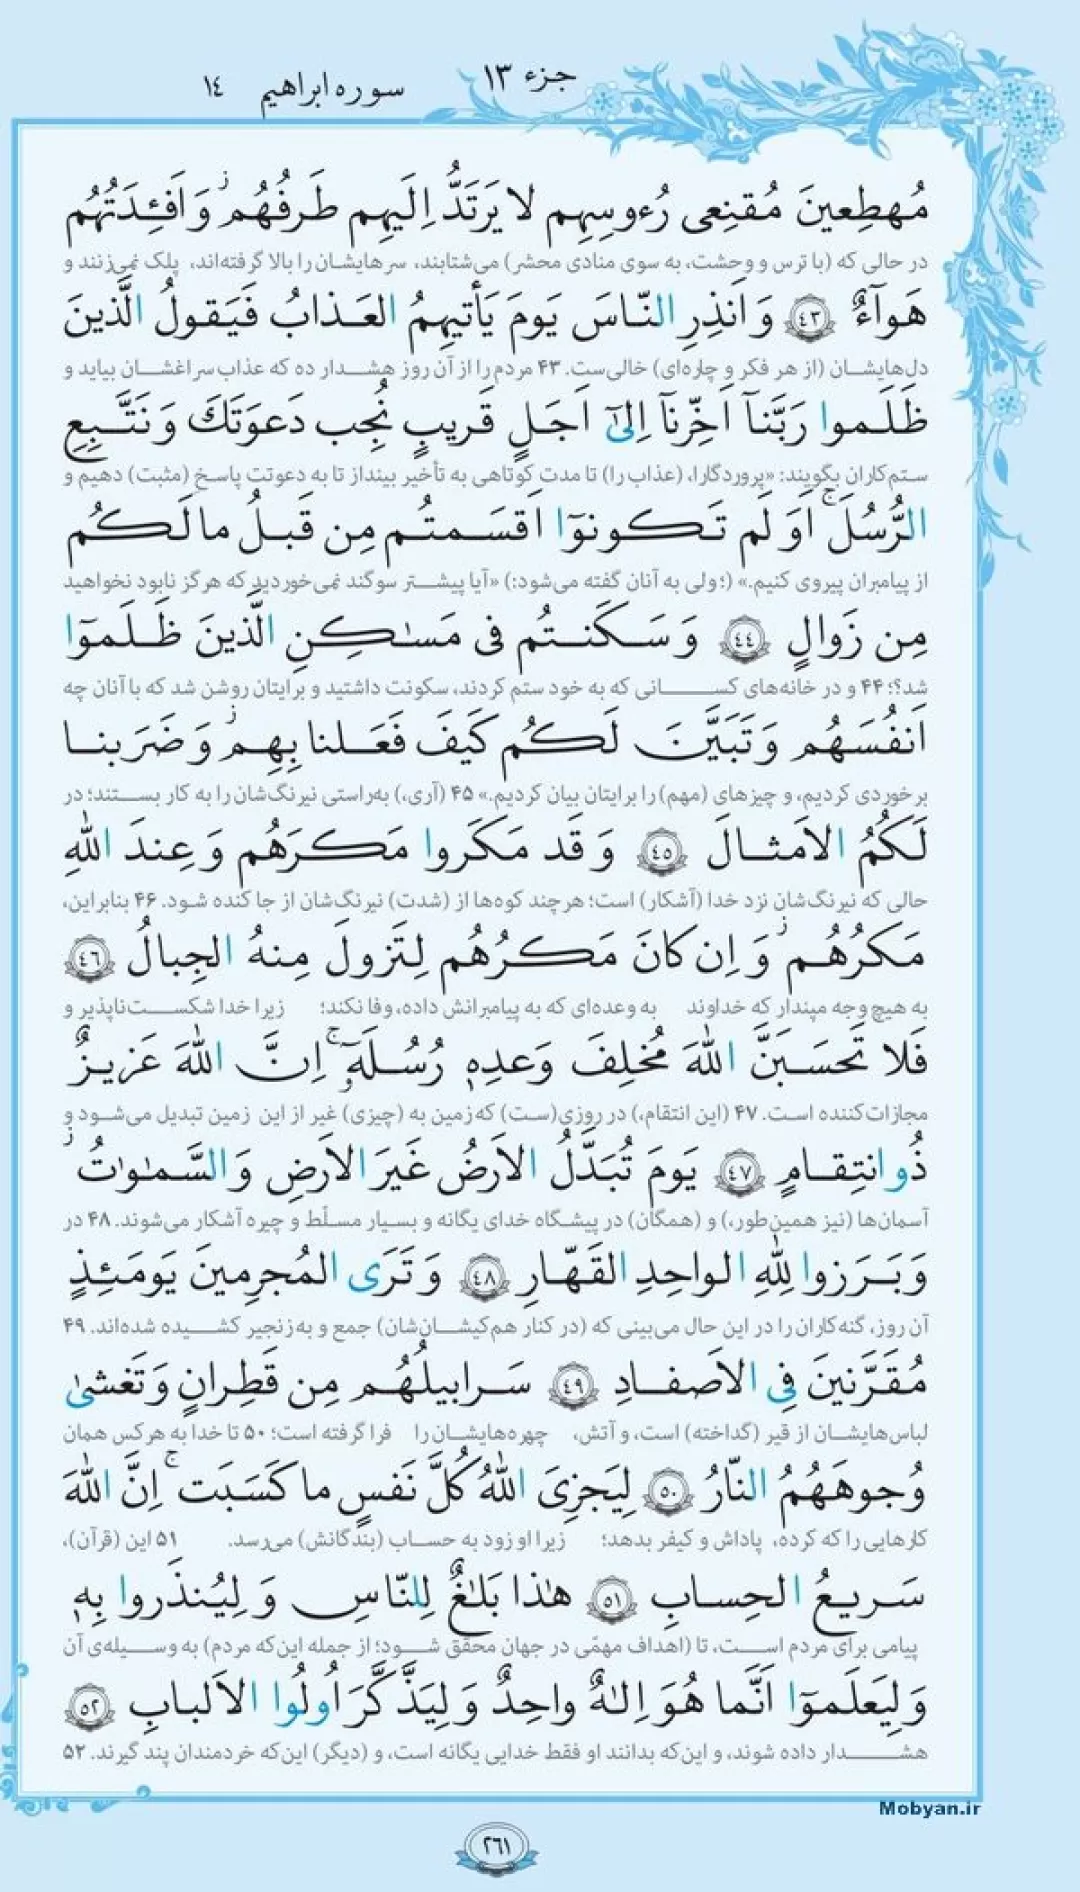 جزء ١٣
سوره ابراهیم ١٤
مُهطِعینَ مُقنِعی رُءوسِهِم لا یَرتَدُّ اِلَیهِم طَرفُهُم ۖ وَ اَفـِٔدَتُهُم
در حالی که (با ترس و وحشت، به سوی منادی محشر) می‌شتابند، سرهایشان را بالا گرفته‌اند، پلک نمی‌زنند و
هَوآءٌ ٤٣ وَ اَنذِرِ النّاسَ یَومَ یَأتیهِمُ العَذابُ فَیَقولُ الَّذینَ
دل‌هایشان (از هر فکر و چاره‌ای) خالی‌ست. ۴۳ مردم را از آن روز هشدار ده که عذاب سراغشان بیاید و
ظَلَموا رَبَّنآ اَخِّرنآ اِلیٰٓ اَجَلٍ قَریبٍ نُجِب دَعوَتَكَ وَ نَتَّبِعِ
ستم‌کاران بگویند: «پروردگارا، (عذاب را) تا مدت کوتاهی به تأخیر بینداز تا به دعوتت پاسخ (مثبت) دهیم و
الرُّسُلَ ۚ اَوَ لَم تَکونوٓا اَقسَمتُم مِن قَبلُ ما لَکُم
از پیامبران پیروی کنیم.» (؛ولی به آنان گفته می‌شود:) «آیا پیشتر سوگند نمی‌خوردید که هرگز نابود نخواهید
مِن زَوالٍ ٤٤ وَ سَکَنتُم فی مَسٰکِنِ الَّذینَ ظَلَموٓا
شد؟؛ ۴۴ و در خانه‌های کسانی که به خود ستم کردند، سکونت داشتید و برایتان روشن شد که با آنان چه
اَنفُسَهُم وَ تَبَیَّنَ لَکُم کَیفَ فَعَلنا بِهِم ۖ وَ ضَرَبنا
برخوردی کردیم، و چیزهای (مهم) را برایتان بیان کردیم.» ۴۵ (آری،) به‌راستی نیرنگ‌شان را به کار بستند؛ در
لَکُمُ الاَمثالَ ٤٥ وَ قَد مَکَروا مَکرَهُم وَ عِندَ اللّٰهِ
حالی که نیرنگ‌شان نزد خدا (آشکار) است؛ هرچند کوه‌ها از (شدت) نیرنگ‌شان از جا کنده شود. ۴۶ بنابراین،
مَکرُهُم ۖ وَ اِن کانَ مَکرُهُم لِتَزولَ مِنهُ الجِبالُ ٤٦
به هیچ وجه مپندار که خداوند به وعده‌ای که به پیامبرانش داده، وفا نکند؛ زیرا خدا شکست‌ناپذیر و
فَلا تَحسَبَنَّ اللّٰهَ مُخلِفَ وَعدِهٖ رُسُلَهٗٓ ۚ اِنَّ اللّٰهَ عَزیزٌ
مجازات‌کننده است. ۴۷ (این انتقام،) در روزی(ست) که زمین به (چیزی) غیر از این زمین تبدیل می‌شود و
ذُو انتِقامٍ ٤٧ یَومَ تُبَدَّلُ الاَرضُ غَیرَ الاَرضِ وَ السَّمٰوٰتُ ۖ
آسمان‌ها (نیز همین‌طور،) و (همگان) در پیشگاه خدای یگانه و بسیار مسلّط و چیره آشکار می‌شوند. ۴۸ در
وَ بَرَزوا لِلّٰهِ الواحِدِ القَهّارِ ٤٨ وَ تَرَی المُجرِمینَ یَومَئِذٍ
آن روز، گنه‌کاران را در این حال می‌بینی که (در کنار هم‌کیشان‌شان) جمع و به زنجیر کشیده شده‌اند. ۴۹
مُقَرَّنینَ فِی الاَصفادِ ٤٩ سَرابیلُهُم مِن قَطِرانٍ وَ تَغشیٰ
لباس‌هایشان از قیر (گداخته) است، و آتش، چهره‌هایشان را فرا گرفته است؛ ۵۰ تا خدا به هرکس همان
وُجوهَهُمُ النّارُ ٥٠ لِیَجزِیَ اللّٰهُ کُلَّ نَفسٍ ما کَسَبَت ۚ اِنَّ اللّٰهَ
کارهایی را که کرده، پاداش و کیفر بدهد؛ زیرا او زود به حساب (بندگانش) می‌رسد. ۵۱ این (قرآن)،
سَریعُ الحِسابِ ٥١ هٰذا بَلٰغٌ لِلنّاسِ وَ لِیُنذَروا بِهٖ
پیامی برای مردم است، تا (اهداف مهمّی در جهان محقّق شود؛ از جمله این‌که مردم) به وسیله‌ی آن
وَ لِیَعلَموٓا اَنَّما هُوَ اِلٰهٌ واحِدٌ وَ لِیَذَّکَّرَ اُولُوا الاَلبابِ ٥٢
هشدار داده شوند، و این‌که بدانند او فقط خدایی یگانه است، و (دیگر) این‌که خردمندان پند گیرند. ۵۲
Mobyan.ir
٢٦١